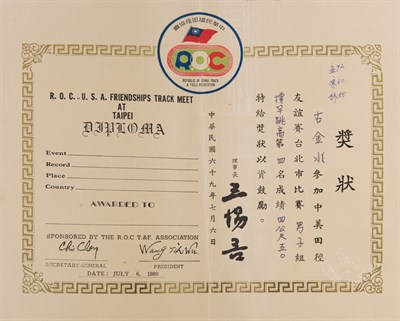 中華民國田徑協會
R.O.C
REPUBLIC OF CHINA TRACK
& FIELD ASSOCIATION
R.O.C.-U.S.A. FRIENDSHIPS TRACK MEET
AT
TAIPEI
DIPLOMA
Event
Record
Place
Country
AWARDED TO
SPONSORED BY THE R.O.C T.&F. ASSOCIATION
SECRETARY-GENERAL
PRESIDENT
DATE: JULY 6, 1980
獎狀
古金水參加中美田徑
友誼賽台北市比賽男子組
撐竿跳高第四名成績四公尺五。
特給獎狀以資鼓勵。
理事長
王惕吾
中華民國六十九年七月六日